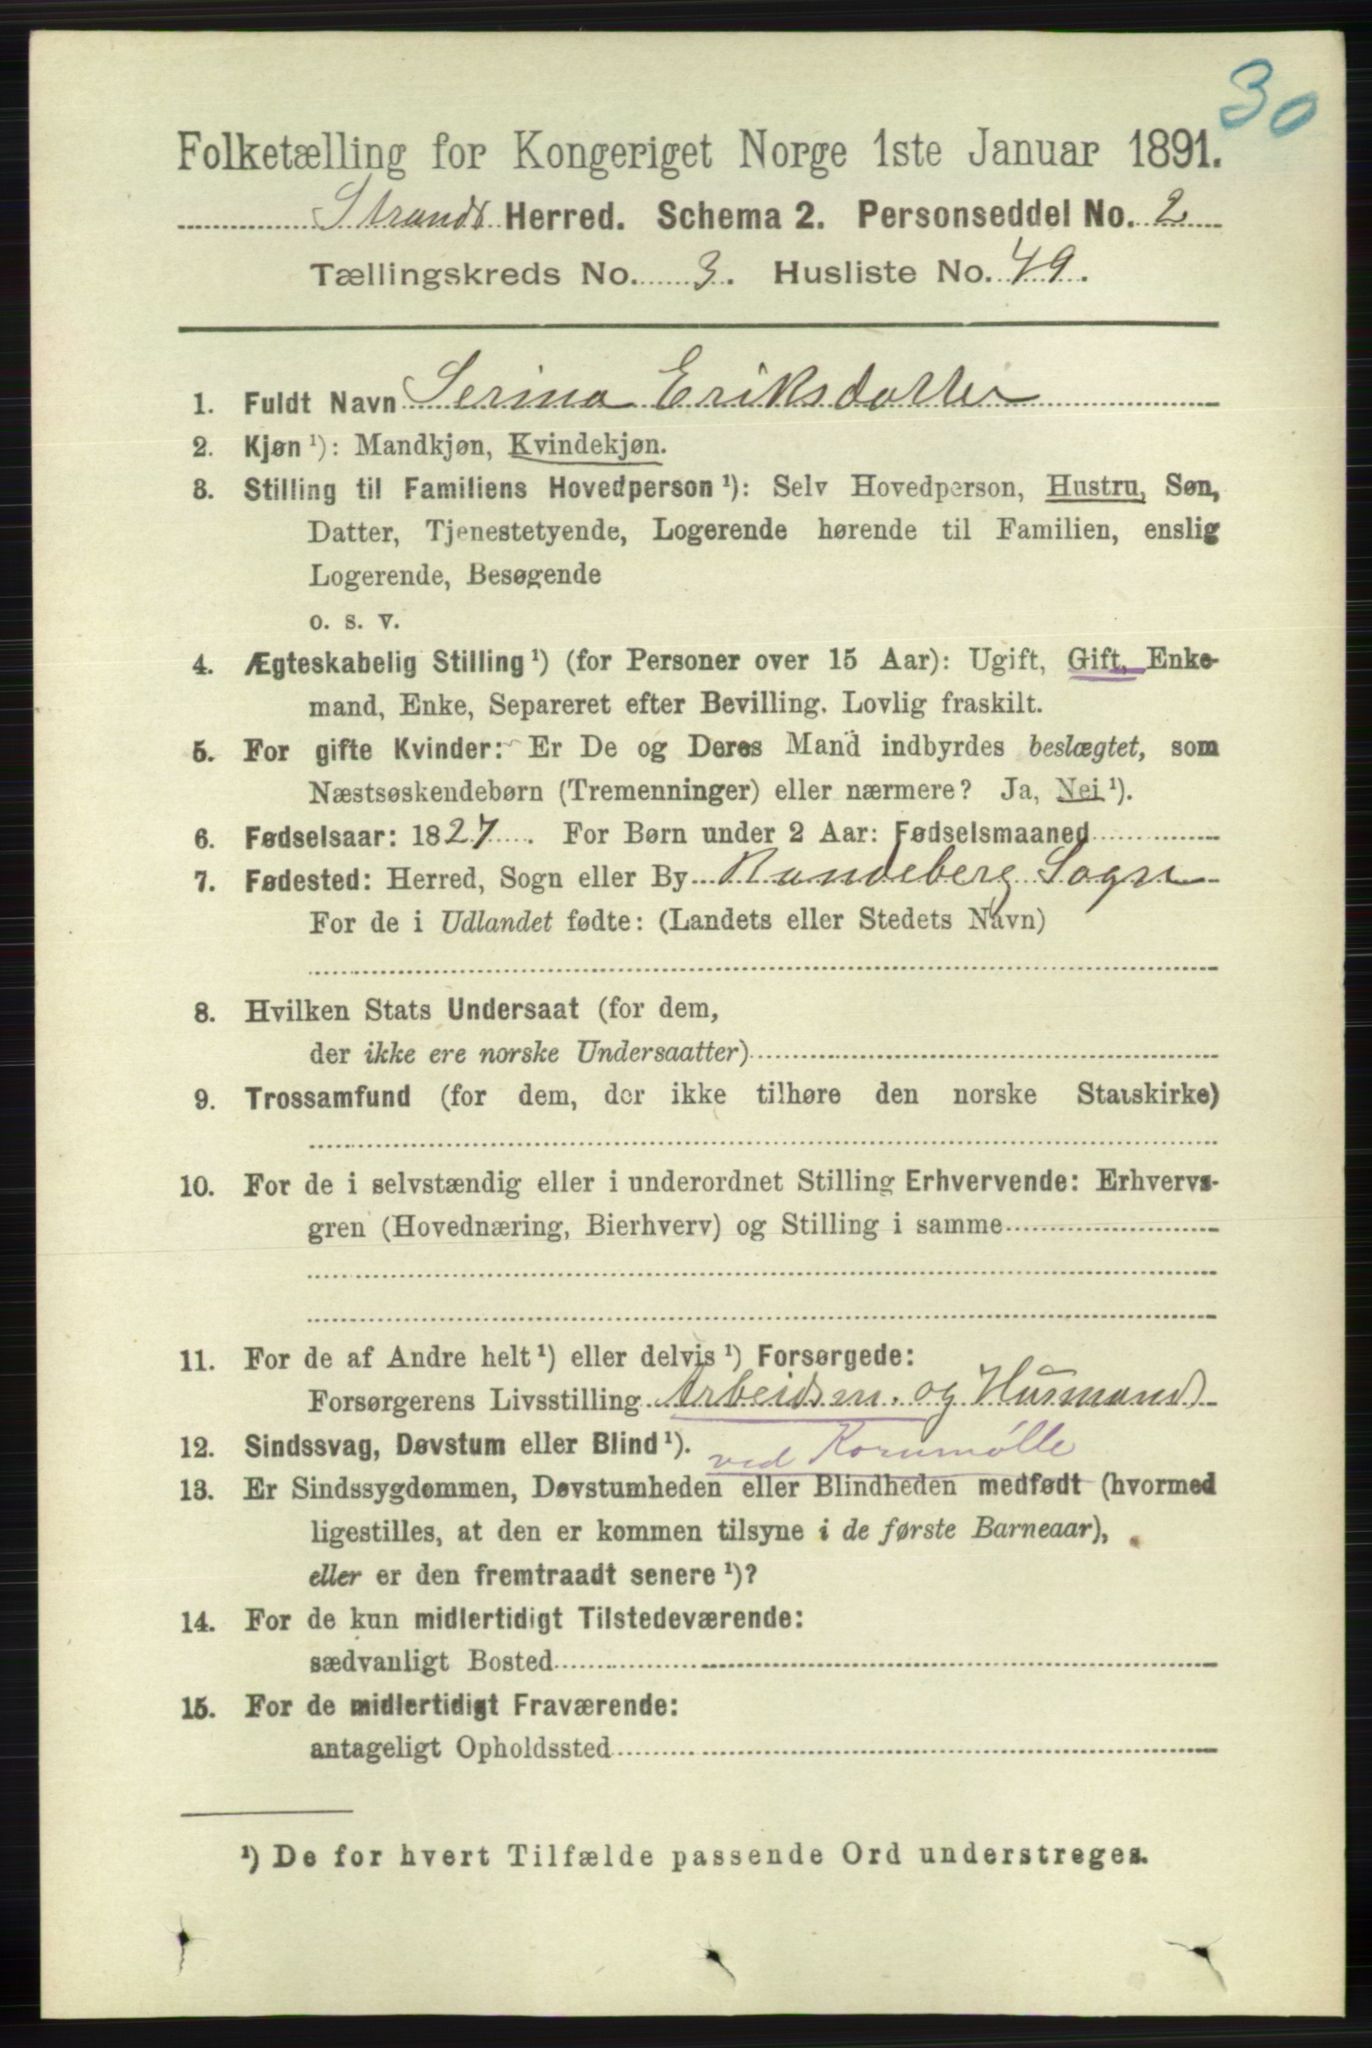 30
Folketælling for Kongeriget Norge 1ste Januar 1891.
Strands Herred. Schema 2. Personseddel No. 2
Tællingskreds No. 3. Husliste No. 49.
1. Fuldt Navn Serina Eriksdatter
2. Kjøn ¹): Mandkjøn, Kvindekjøn.
3. Stilling til Familiens Hovedperson ¹): Selv Hovedperson, Hustru, Søn,
Datter, Tjenestetyende, Logerende hørende til Familien, enslig
Logerende, Besøgende
o. s. v.
4. Ægteskabelig Stilling ¹) (for Personer over 15 Aar): Ugift, Gift, Enke-
mand, Enke, Separeret efter Bevilling. Lovlig fraskilt.
5. For gifte Kvinder: Er De og Deres Mand indbyrdes beslægtet, som
Næstsøskendebørn (Tremenninger) eller nærmere? Ja, Nei ¹).
6. Fødselsaar: 1827. For Børn under 2 Aar: Fødselsmaaned
7. Fødested: Herred, Sogn eller By Randeberg Sogn
For de i Udlandet fødte: (Landets eller Stedets Navn)
8. Hvilken Stats Undersaat (for dem,
der ikke ere norske Undersaatter)
9. Trossamfund (for dem, der ikke tilhøre den norske Statskirke)
10. For de i selvstændig eller i underordnet Stilling Erhvervende: Erhvervs-
gren (Hovednæring, Bierhverv) og Stilling i samme
11. For de af Andre helt ¹) eller delvis ¹) Forsørgede:
Forsørgerens Livsstilling Arbeidsm. og Husmand
12. Sindssvag, Døvstum eller Blind ¹). ved Kornmølle
13. Er Sindssygdommen, Døvstumheden eller Blindheden medfødt (hvormed
ligestilles, at den er kommen tilsyne i de første Barneaar),
eller er den fremtraadt senere ¹)?
14. For de kun midlertidigt Tilstedeværende:
sædvanligt Bosted
15. For de midlertidigt Fraværende:
antageligt Opholdssted
¹) De for hvert Tilfælde passende Ord understreges.